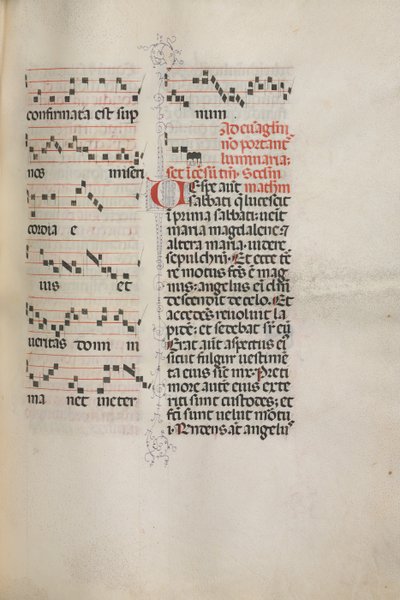 confirmata est sup
nos miseri
cordia e
ius et
ueritas domi n
ma net ineter
num.
Ad eua̅gliu̅
no̅ portant̅
luminaria:
set ice̅su̅ tm̅. Sec̅m̅
matheu̅
Uespe aut̅
sabbati q̅ lucescit
i̅ prima sabbati: ueit
maria magdalene ⁊
altera maria. uidere
sepulchru̅. Et ecce te̅
re motus fc̅s e̅ mag
nus: angelus eni̅ dn̅i
descendit de celo. Et
accede̅s reuoluit la
pide̅: et sedebat sr̅ eu̅
Erat aut̅ aspectus ei᷒
sicut fulgur: uestime̅
ta eius sic̅ nix. Preti
more aute̅ eius exte
riti sunt custodes: et
fc̅i sunt uelut mortu
i. Rn̅dens at̅ angelus